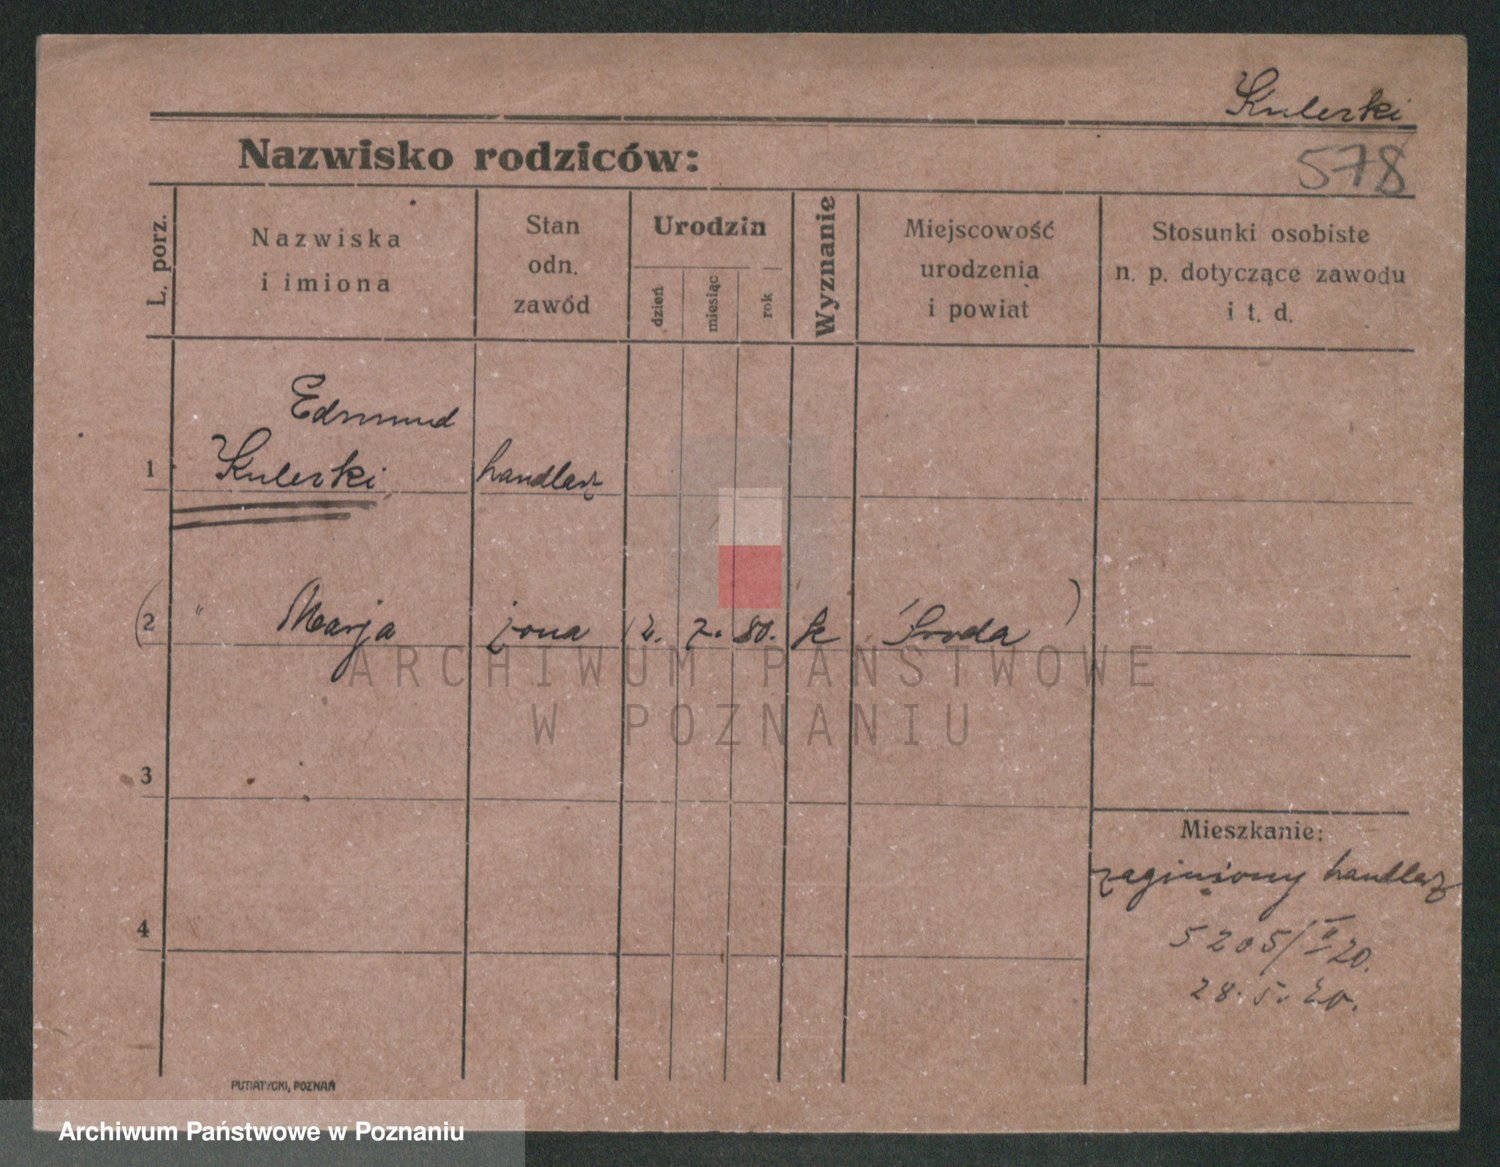 Kulerski
578
Nazwisko rodziców:
L. porz.
Nazwiska
i imiona
Stan
odn.
zawód
Urodzin
dzień
miesiąc
rok
Wyznanie
Miejscowość
urodzenia
i powiat
Stosunki osobiste
n. p. dotyczące zawodu
i t. d.
Edmund
1 Kulerski handlarz
2 " Marja żona 2. 7. 80. k Środa
ARCHIWUM PAŃSTWOWE
W POZNANIU
3
Mieszkanie:
zaginiony handlarz
4
5205/II 20.
28. 5. 20.
PUTIATYCKI, POZNAŃ
Archiwum Państwowe w Poznaniu